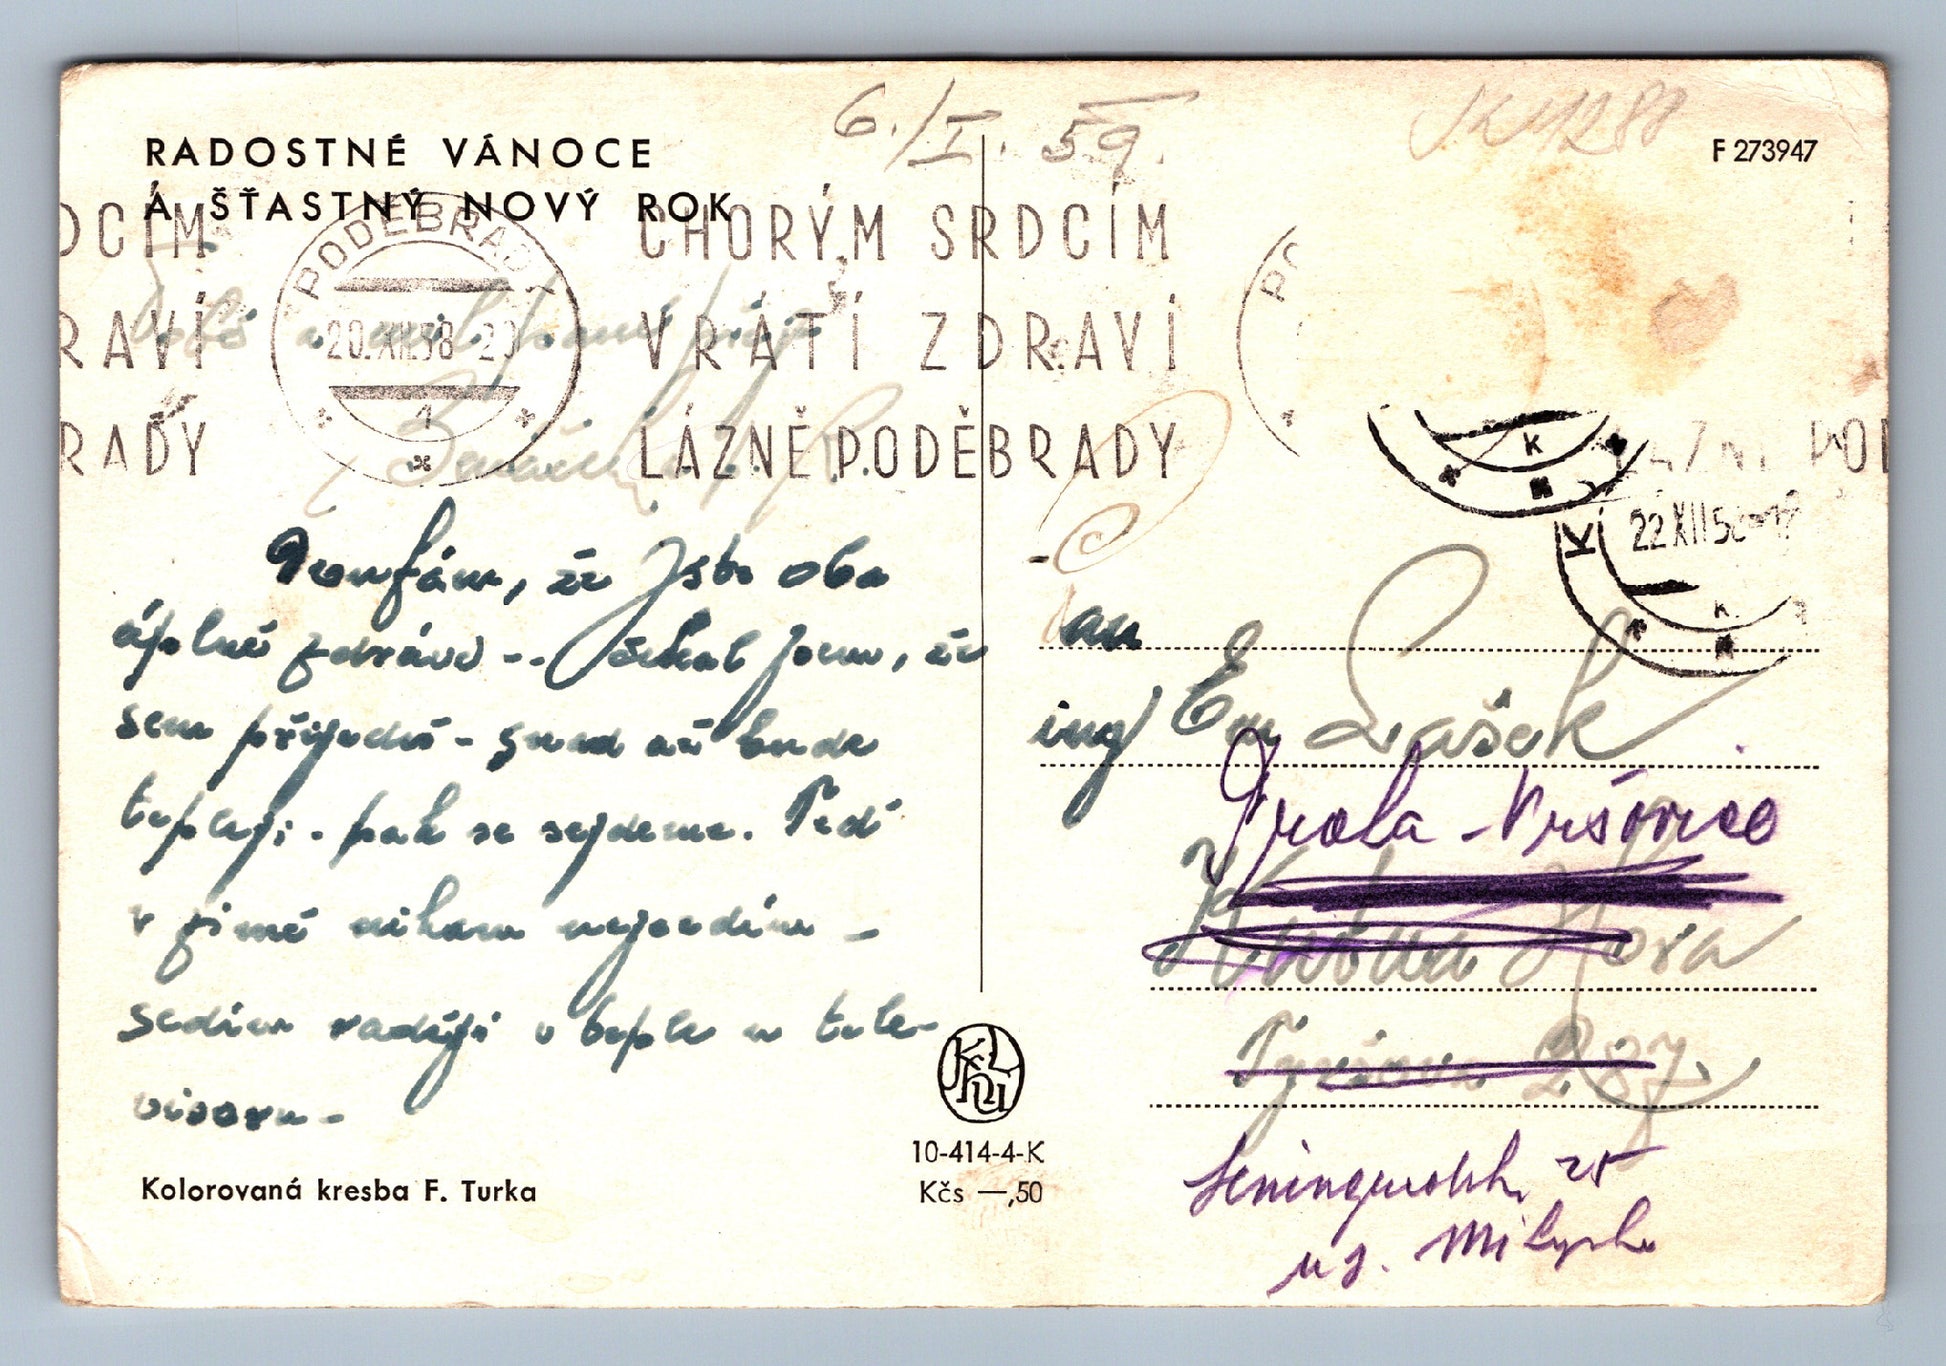 6./I. 59.
F 273947
RADOSTNÉ VÁNOCE
A ŠŤASTNÝ NOVÝ ROK
DCÍM
RAVÍ
RADY
PODĚBRADY
20.XII.58-20
1
CHORÝM SRDCÍM
VRÁTÍ ZDRAVÍ
LÁZNĚ PODĚBRADY
22 XII 58
K
Doufám, že Jste oba
úplně zdrávi -- čekal jsem, že
sem přijedeš - snad až bude
tepleji - pak se sejdeme. Teď
v zimě nikam nejezdím -
sedím raději v teple u tele-
visoru -
ing Em Lašek
Praha - Vršovice
Kutná Hora
Tyršova 287
Leningradská 25
u J. Mi
10-414-4-K
Kčs —,50
Kolorovaná kresba F. Turka